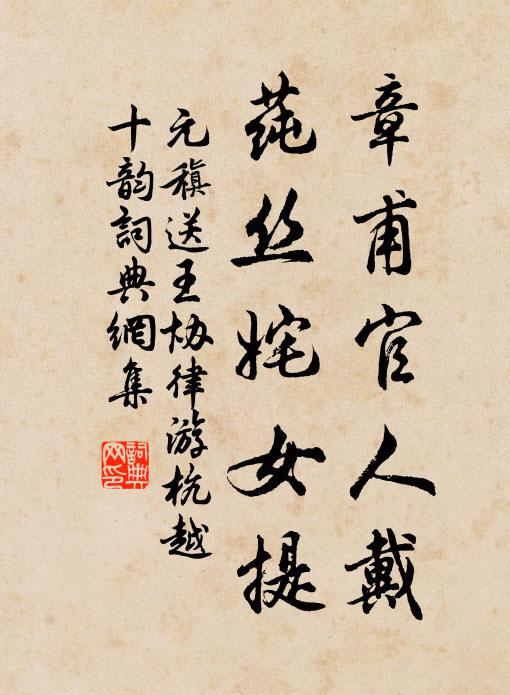 章甫官人戴
莼丝姹女提
元稹送王协律游杭越
十韵詞典網集
詞典网印